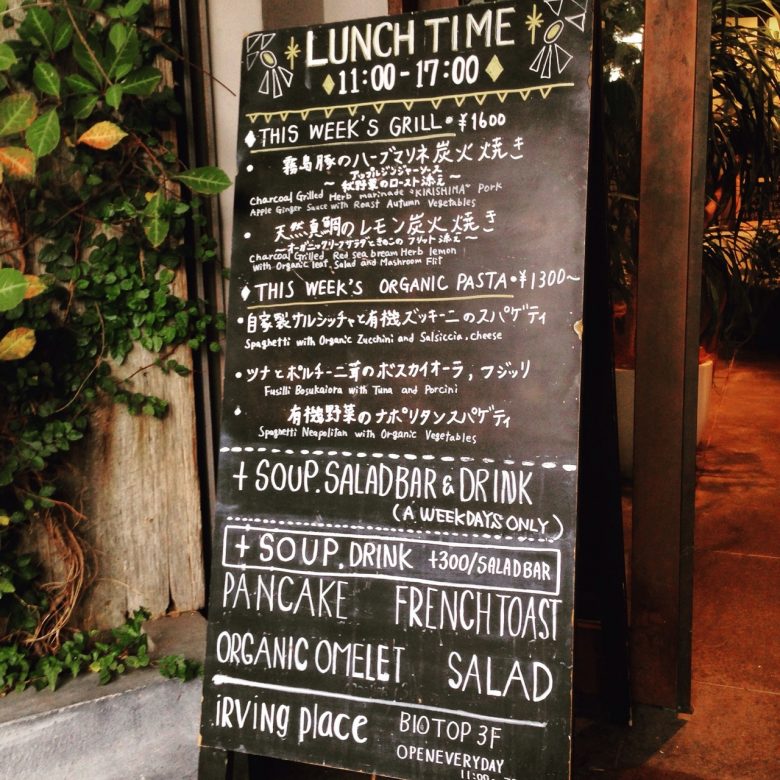 LUNCH TIME
11:00-17:00
THIS WEEK'S GRILL・¥1600
・霧島豚のハーブマリネ炭火焼き
アップルジンジャーソース
～秋野菜のロースト添え～
Charcoal Grilled Herb marinade "KIRISHIMA" Pork
Apple Ginger Sauce with Roast Autumn Vegetables
・天然真鯛のレモン炭火焼き
～オーガニックリーフサラダときのこのフリット添え～
Charcoal Grilled, Red sea bream Herb lemon
with Organic leaf, Salad and Mashroom Flit
THIS WEEK'S ORGANIC PASTA・¥1300~
・自家製サルシッチャと有機ズッキーニのスパゲティ
Spaghetti with Organic Zucchini and Salsiccia.cheese
・ツナとポルチーニ茸のボスカイオーラ,フジッリ
Fusilli Bosukaiora with Tuna and Porcini
・有機野菜のナポリタンスパゲティ
Spaghetti Neapolitan with Organic Vegetables
+ SOUP.SALADBAR & DRINK
(A WEEKDAYS ONLY)
+ SOUP.DRINK +300/SALADBAR
PANCAKE FRENCHTOAST
ORGANIC OMELET SALAD
iRViNG plAce BIOTOP 3F
OPENEVERYDAY